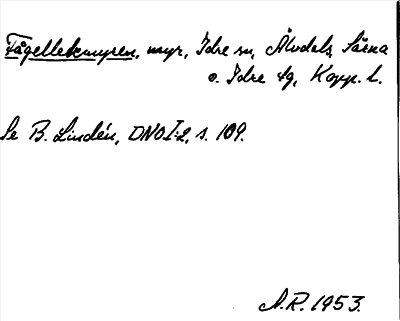 Fågellekmyren, myr, Idre sn, Älvdals, Särna
o. Idre tg, Kopp. l.
Se B. Lindén, DNOI:2, s. 109.
A.R. 1953.